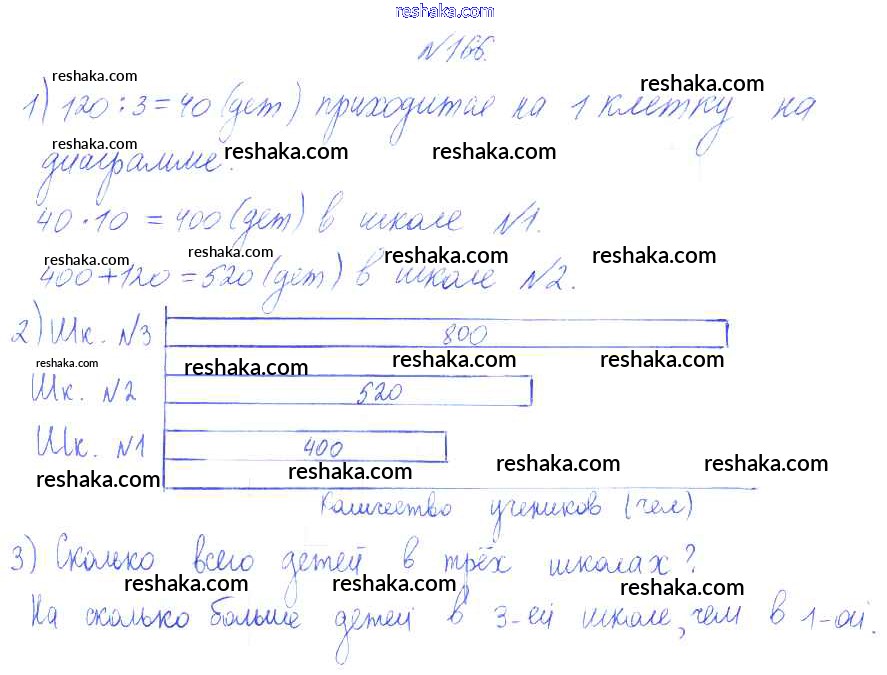 reshaka.com
№166.
reshaka.com reshaka.com
1) 120 : 3 = 40 (дет) приходится на 1 клетку на
reshaka.com reshaka.com reshaka.com
диаграмме.
40 · 10 = 400 (дет) в школе №1.
reshaka.com reshaka.com reshaka.com reshaka.com
400 + 120 = 520 (дет) в школе №2.
2) Шк. №3 800
reshaka.com reshaka.com reshaka.com reshaka.com
Шк. №2 520
Шк. №1 400
reshaka.com reshaka.com reshaka.com reshaka.com
Количество учеников (чел)
3) Сколько всего детей в трёх школах?
reshaka.com reshaka.com reshaka.com
На сколько больше детей в 3-ей школе, чем в 1-ой.